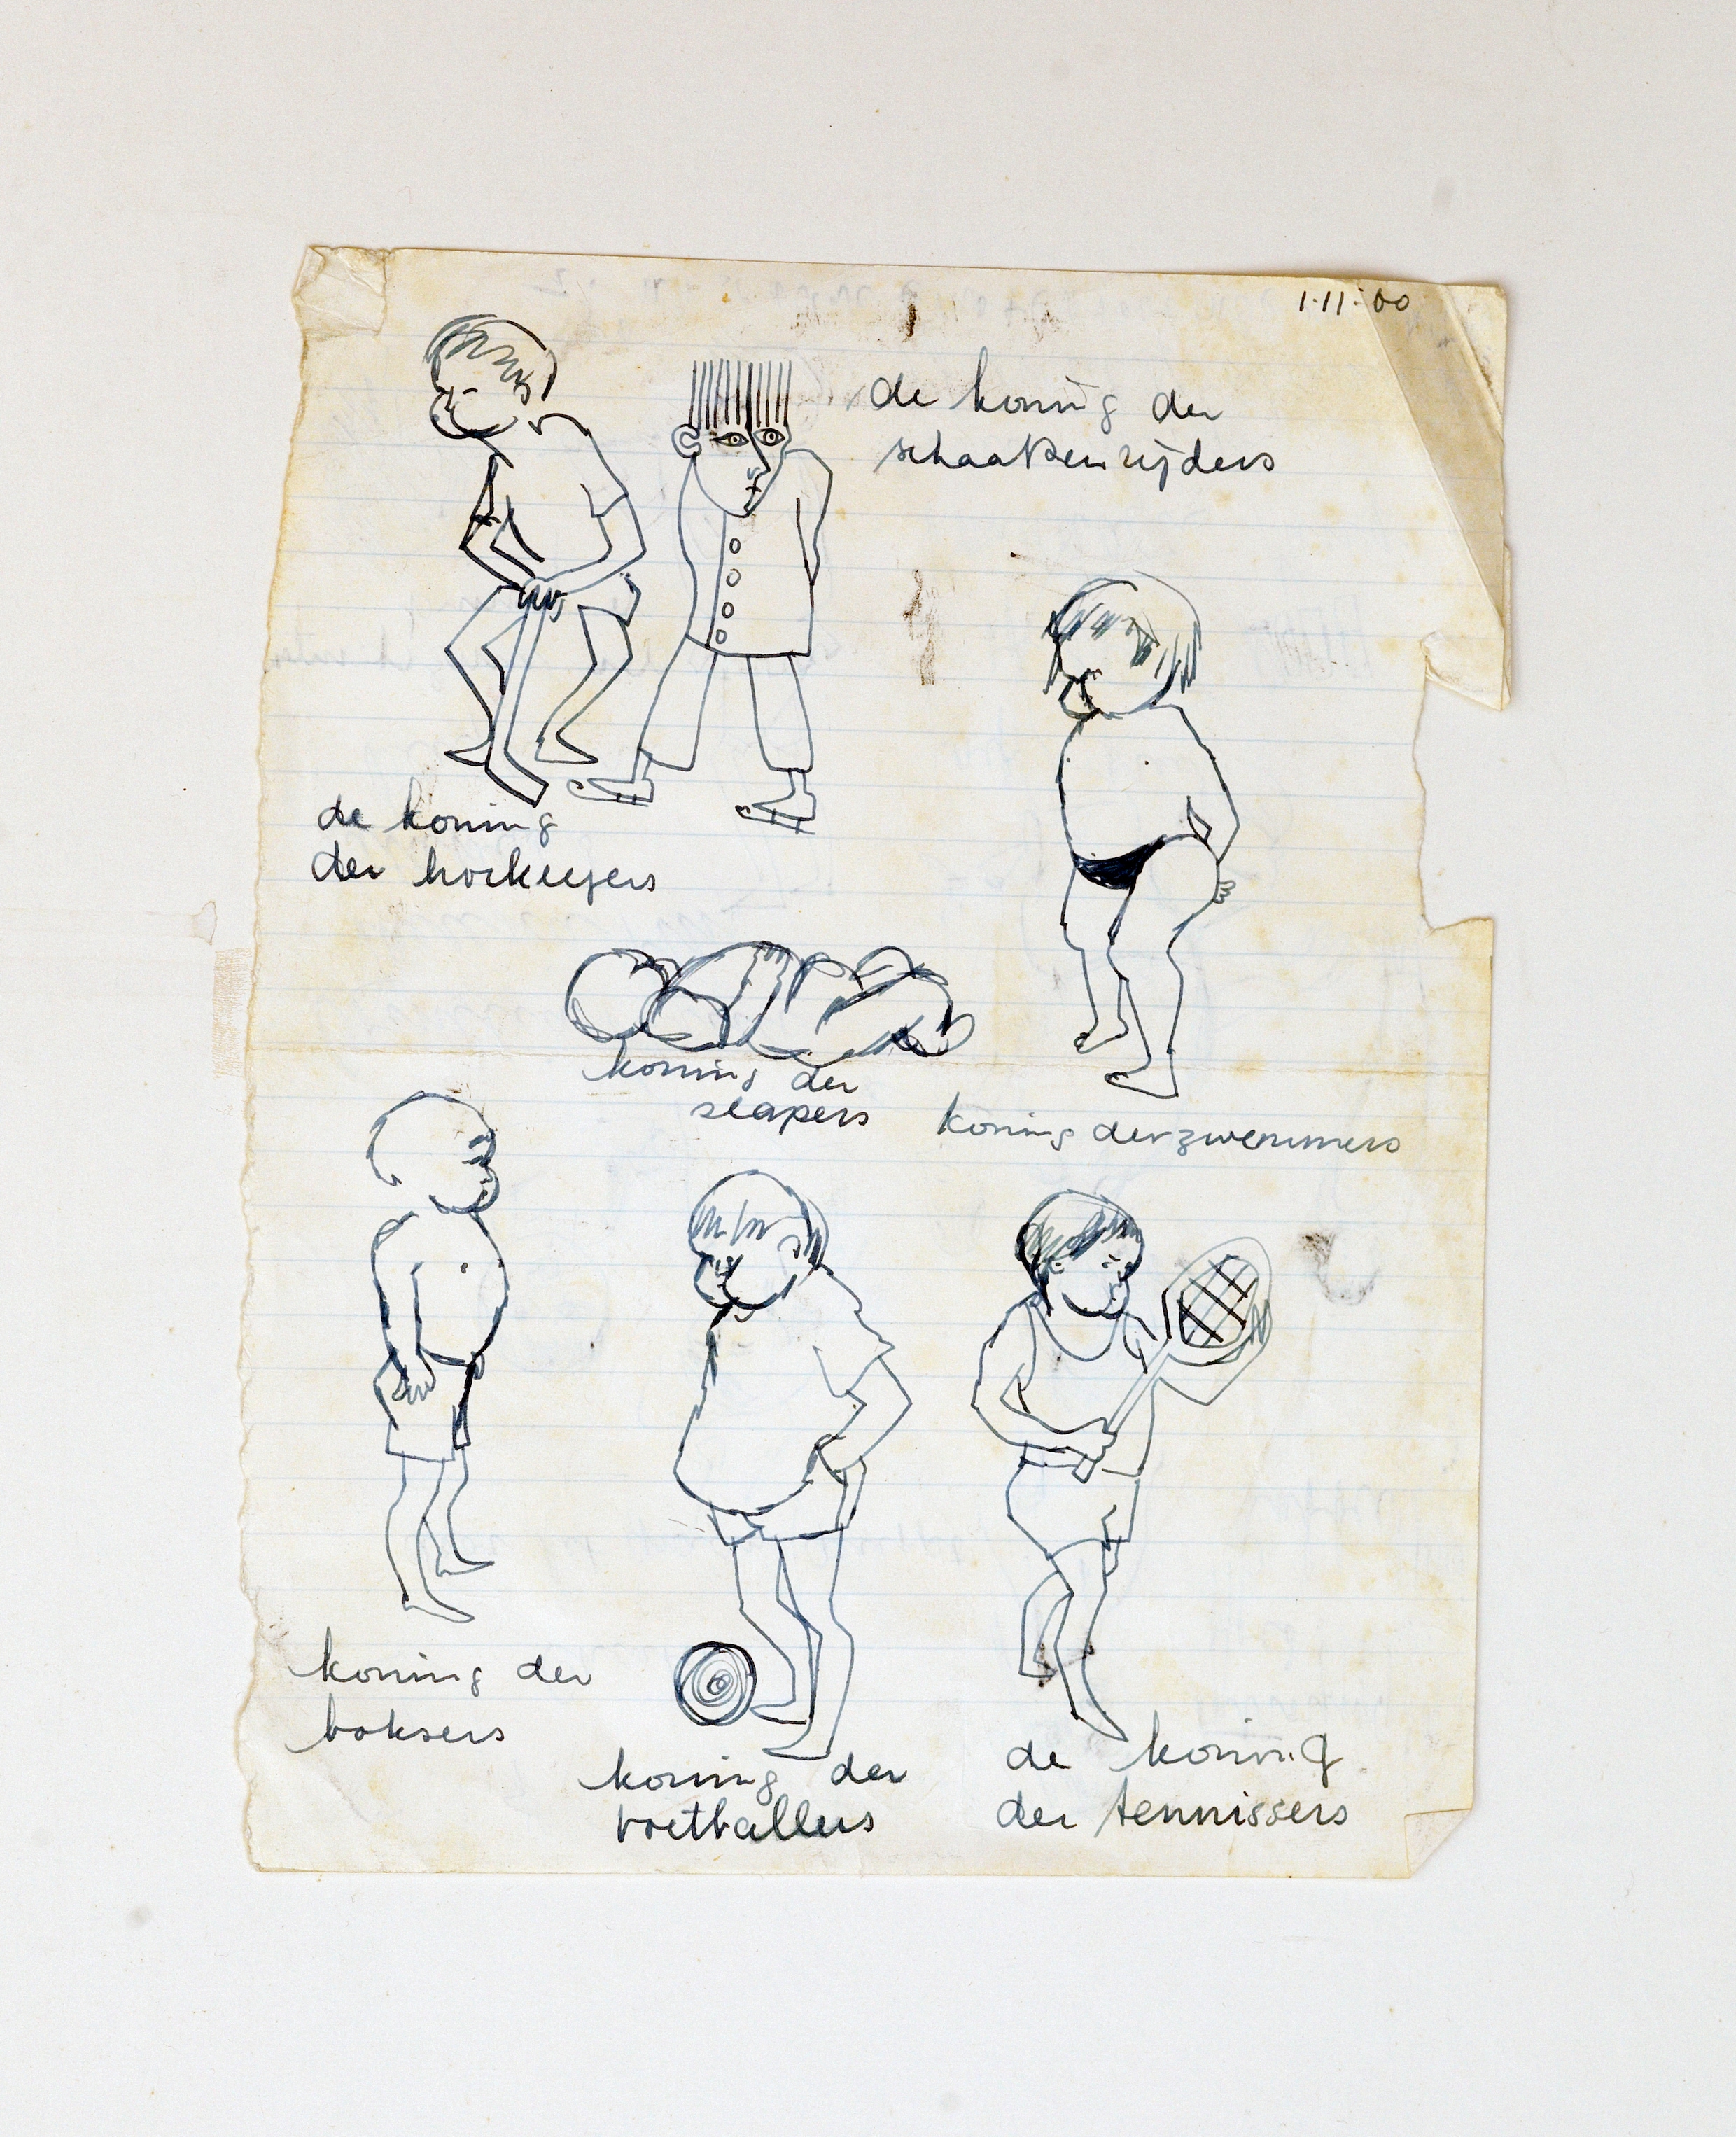 1·11·00
de koning der
schaatsenrijders
de koning
der hockeyers
koning der
slapers
koning der zwemmers
koning der
boksers
koning der
voetballers
de koning
der tennissers